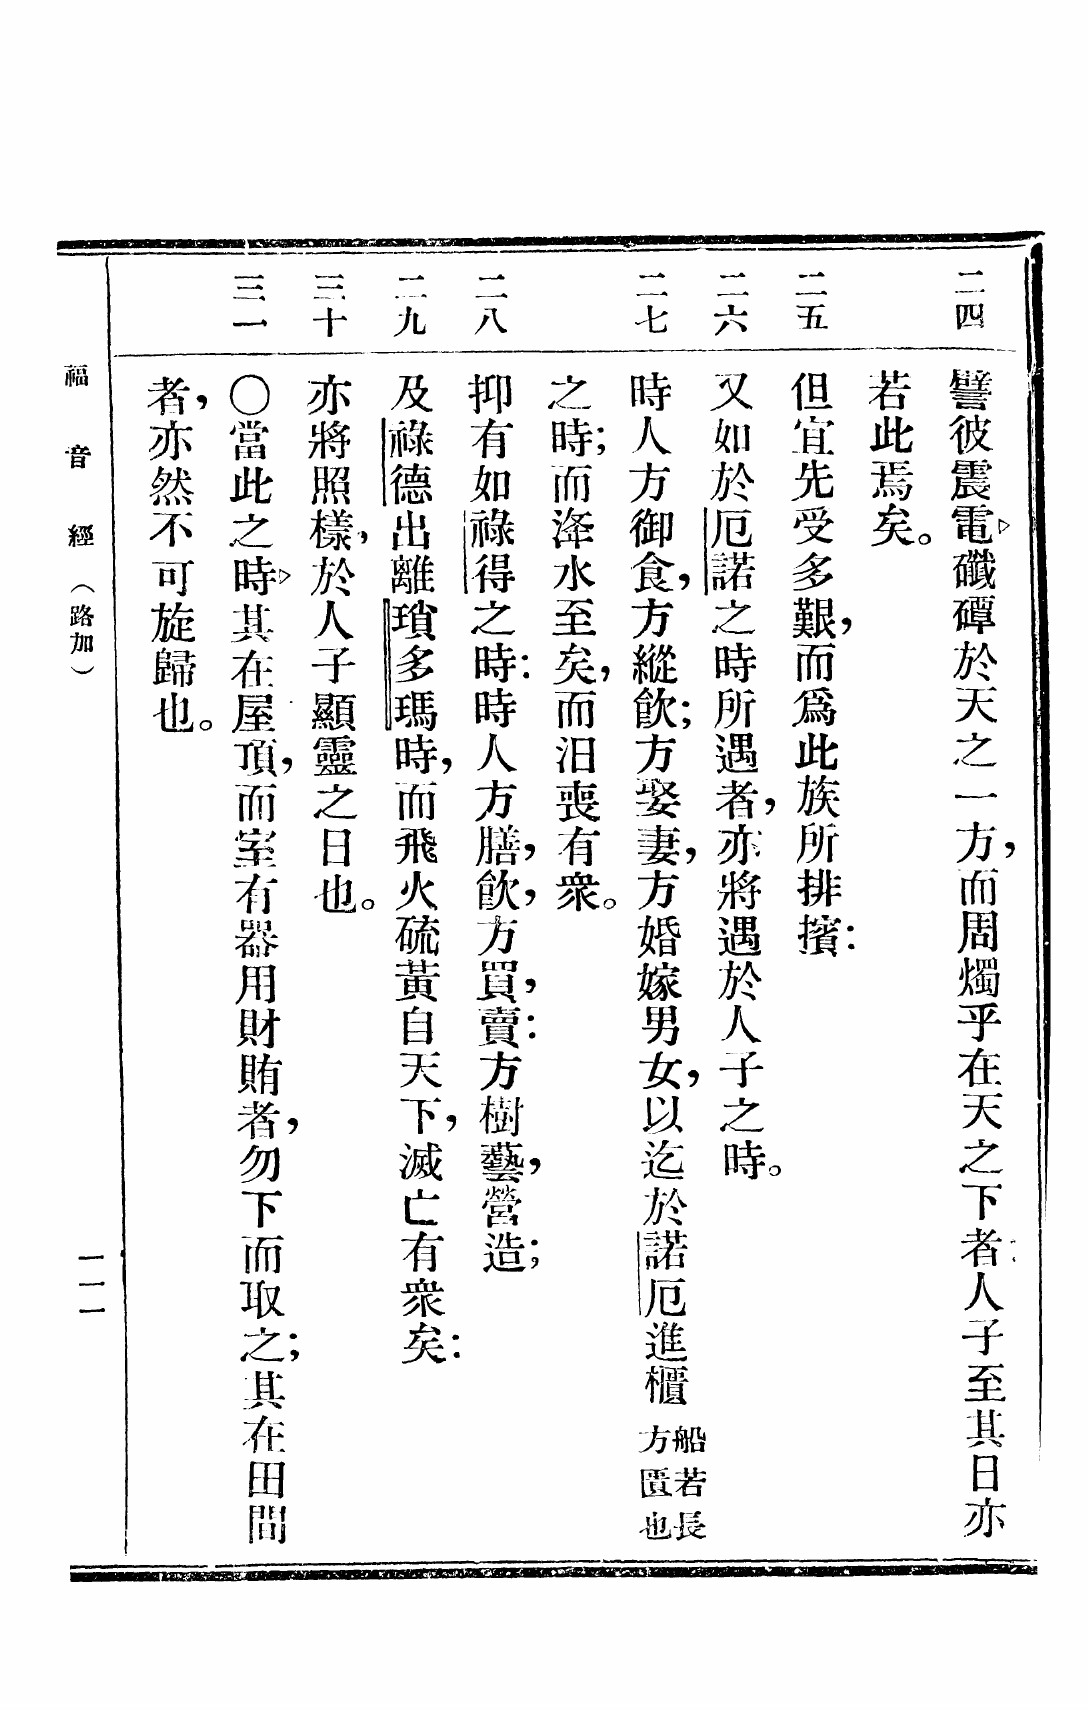 二四 譬彼震電、礮磹於天之一方，而周燭乎在天之下者：人子至其日亦
若此焉矣。
二五 但宜先受多艱，而爲此族所排擯：
二六 又如於厄諾之時所遇者，亦將遇於人子之時。
二七 時人方御食，方縱飮；方娶妻，方婚嫁男女，以迄於諾厄進櫃船若長方匱也
之時；而洚水至矣，而汨喪有衆。
二八 抑有如祿得之時：時人方膳，飮，方買，賣：方樹藝，營造；
二九 及祿德出離瑣多瑪時，而飛火硫黃自天下，滅亡有衆矣：
三十 亦將照樣，於人子顯靈之日也。
三一 〇當此之時、其在屋頂，而室有器用財賄者，勿下而取之；其在田間
者，亦然不可旋歸也。
福音經（路加）
一一一